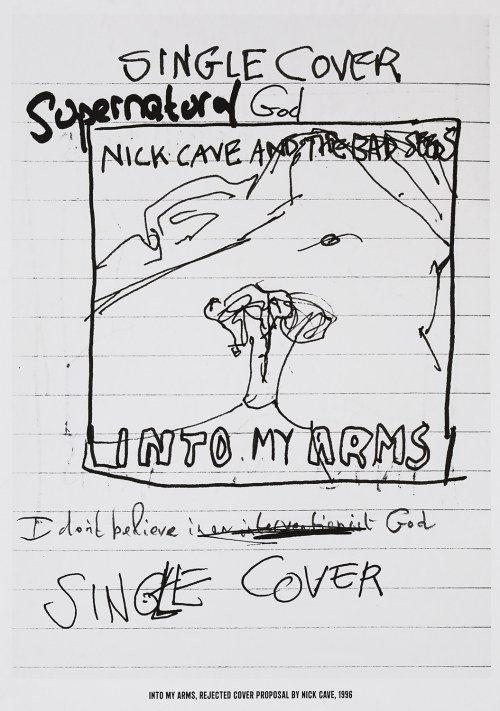 SINGLE COVER
Supernatural God
NICK CAVE AND THE BAD SEEDS
INTO MY ARMS
I don't believe in an interventionist God
SINGLE COVER
INTO MY ARMS, REJECTED COVER PROPOSAL BY NICK CAVE, 1996